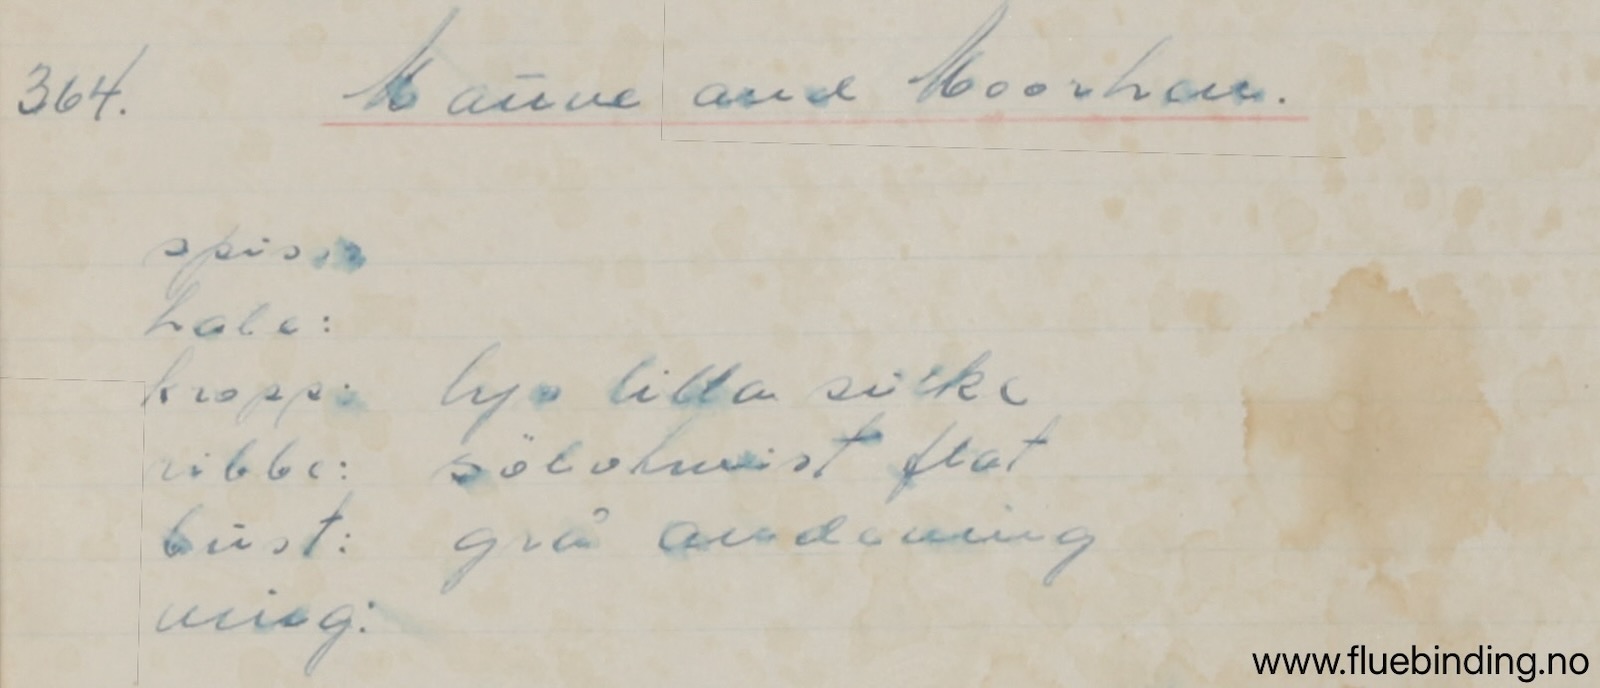 364. Mauve and Moorhen.
spiss:
hale:
kropp: lys lilla silke
ribbe: sölvtwist flat
büst: grå andeving
ving:
www.fluebinding.no